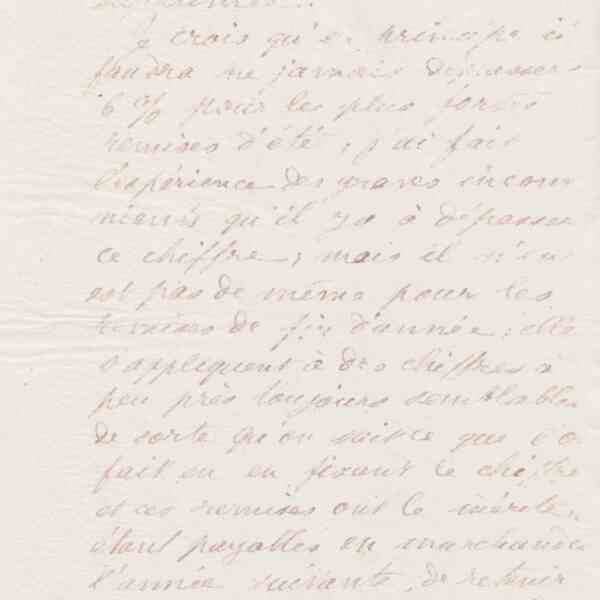 Je crois qu'en principe il
faudra ne jamais dépasser
6 % pour les plus fortes
remises d'été, j'ai fait
l'expérience des graves incon-
vénients qu'il y a à dépasser
ce chiffre, mais il n'en
est pas de même pour les
remises de fin d'année; elle
s'appliquent à des chiffres à
peu près toujours semblables
de sorte qu'on sait ce que l'o
fait en en fixant le chiffre
et ces remises ont le mérite,
étant payables en marchandi
l'année suivante, de retenir